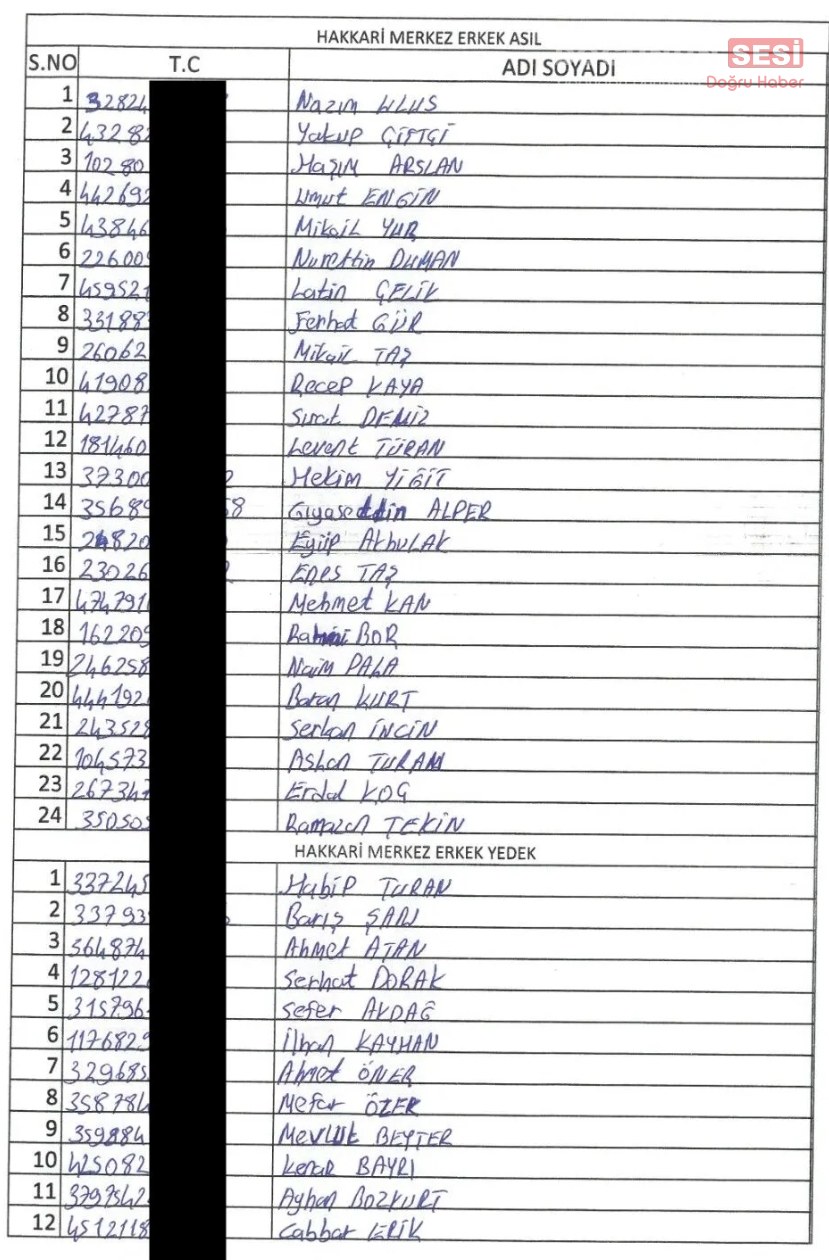 HAKKARİ MERKEZ ERKEK ASIL
SESİ
Doğru Haber
S.NO T.C ADI SOYADI
1 32824 Nazım ULUS
2 43282 Yakup ÇİFTÇİ
3 10280 Haşım ARSLAN
4 442692 Umut ENGİN
5 43846 Mikail YUR
6 22600 Nurettin DUMAN
7 459521 Latin ÇELİK
8 33188 Ferhat GÜR
9 26062 Mikail TAŞ
10 41908 Recep KAYA
11 42787 Sırat DEMİZ
12 181460 Levent TURAN
13 37300 Hekim YİĞİT
14 35689 58 Gıyaseddin ALPER
15 24820 Eyüp Akbulak
16 23026 Enes TAŞ
17 474791 Mehmet KAN
18 162209 BOR
19 246258 Naim PALA
20 444192 Baran KURT
21 243528 Serkan İNCİN
22 104573 Aslan TURAN
23 267347 Erdal KOÇ
24 350505 Ramazan TEKİN
HAKKARİ MERKEZ ERKEK YEDEK
1 337245 Habip TURAN
2 33793 Barış ŞARI
3 564874 Ahmet ATAN
4 128122 Serhat DORAK
5 315796 Sefer AKDAĞ
6 1176829 İlhan KAYHAN
7 329685 Ahmet ÖNER
8 358784 Mefar ÖZER
9 359884 Mevlut BEYTER
10 425082 Kenar BAYRI
11 3797542 Ayhan BOZKURT
12 4512118 Cabbar ERİK